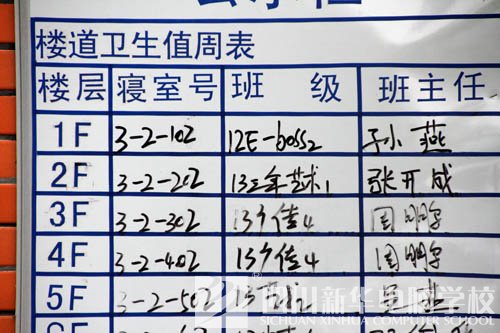 楼道卫生值周表
楼层 寝室号 班 级 班主任
1F 3-2-102 12E-boss2 孙燕
2F 3-2-202 13三年艺术1 张开成
3F 3-2-302 13个佳4 周鹏宇
4F 3-2-402 13个佳4 周鹏宇
5F 3-2-502 13
四川新华电脑学校
SICHUAN XINHUA COMPUTER SCHOOL